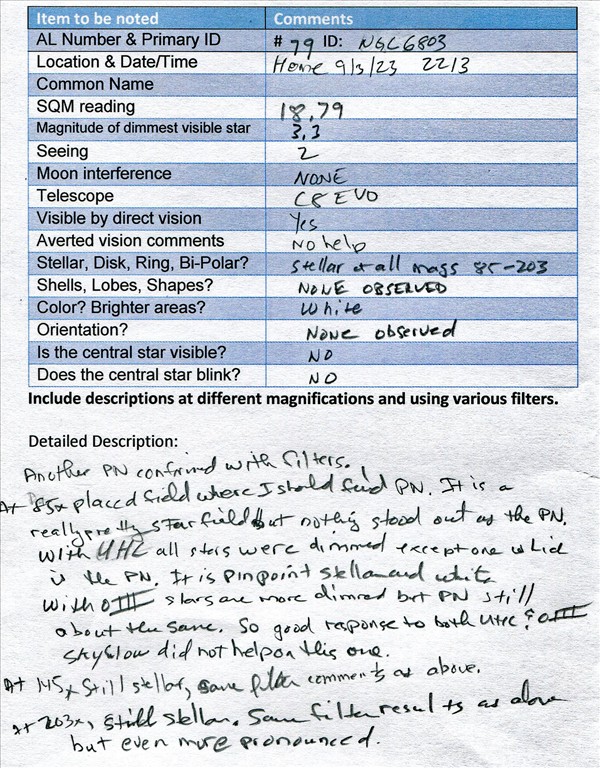 Item to be noted Comments
AL Number & Primary ID # 79 ID: NGC6803
Location & Date/Time Home 9/3/23 2213
Common Name
SQM reading 18.79
Magnitude of dimmest visible star 3.3
Seeing 2
Moon interference NONE
Telescope C8 EVO
Visible by direct vision Yes
Averted vision comments No help
Stellar, Disk, Ring, Bi-Polar? Stellar at all mags 85-203
Shells, Lobes, Shapes? NONE OBSERVED
Color? Brighter areas? White
Orientation? None observed
Is the central star visible? NO
Does the central star blink? NO
Include descriptions at different magnifications and using various filters.
Detailed Description:
Another PN confirmed with filters.
At 85x placed field where I should find PN. It is a
really pretty star field but nothing stood out as the PN.
With UHC all stars were dimmed except one which
is the PN. It is pinpoint stellar and white
With OIII stars are more dimmed but PN still
about the same. So good response to both UHC & OIII
Skyglow did not help on this one.
At 145x still stellar, same filter comments as above.
At 203x, still stellar. Same filter results as above
but even more pronounced.